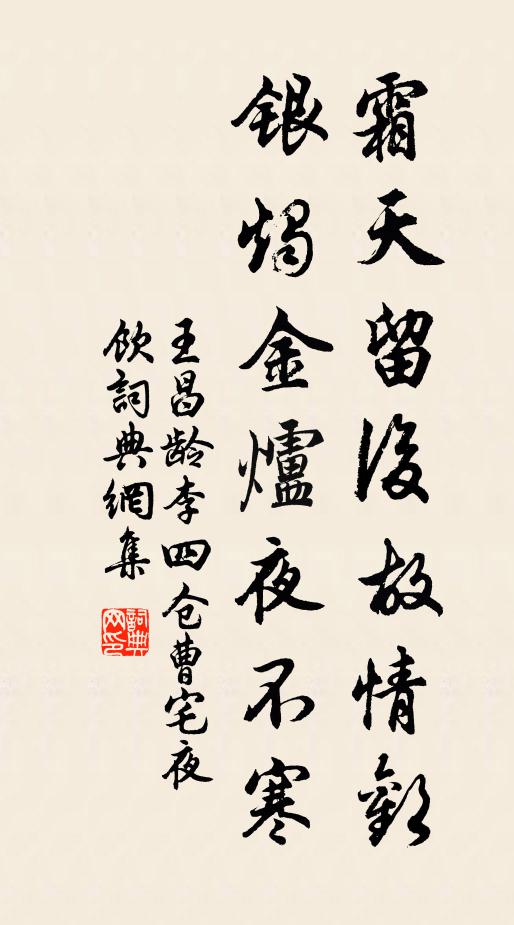 霜天留後故情歡
銀燭金爐夜不寒
王昌龄李四仓曹宅夜
飲詞典網集
詞典
网印